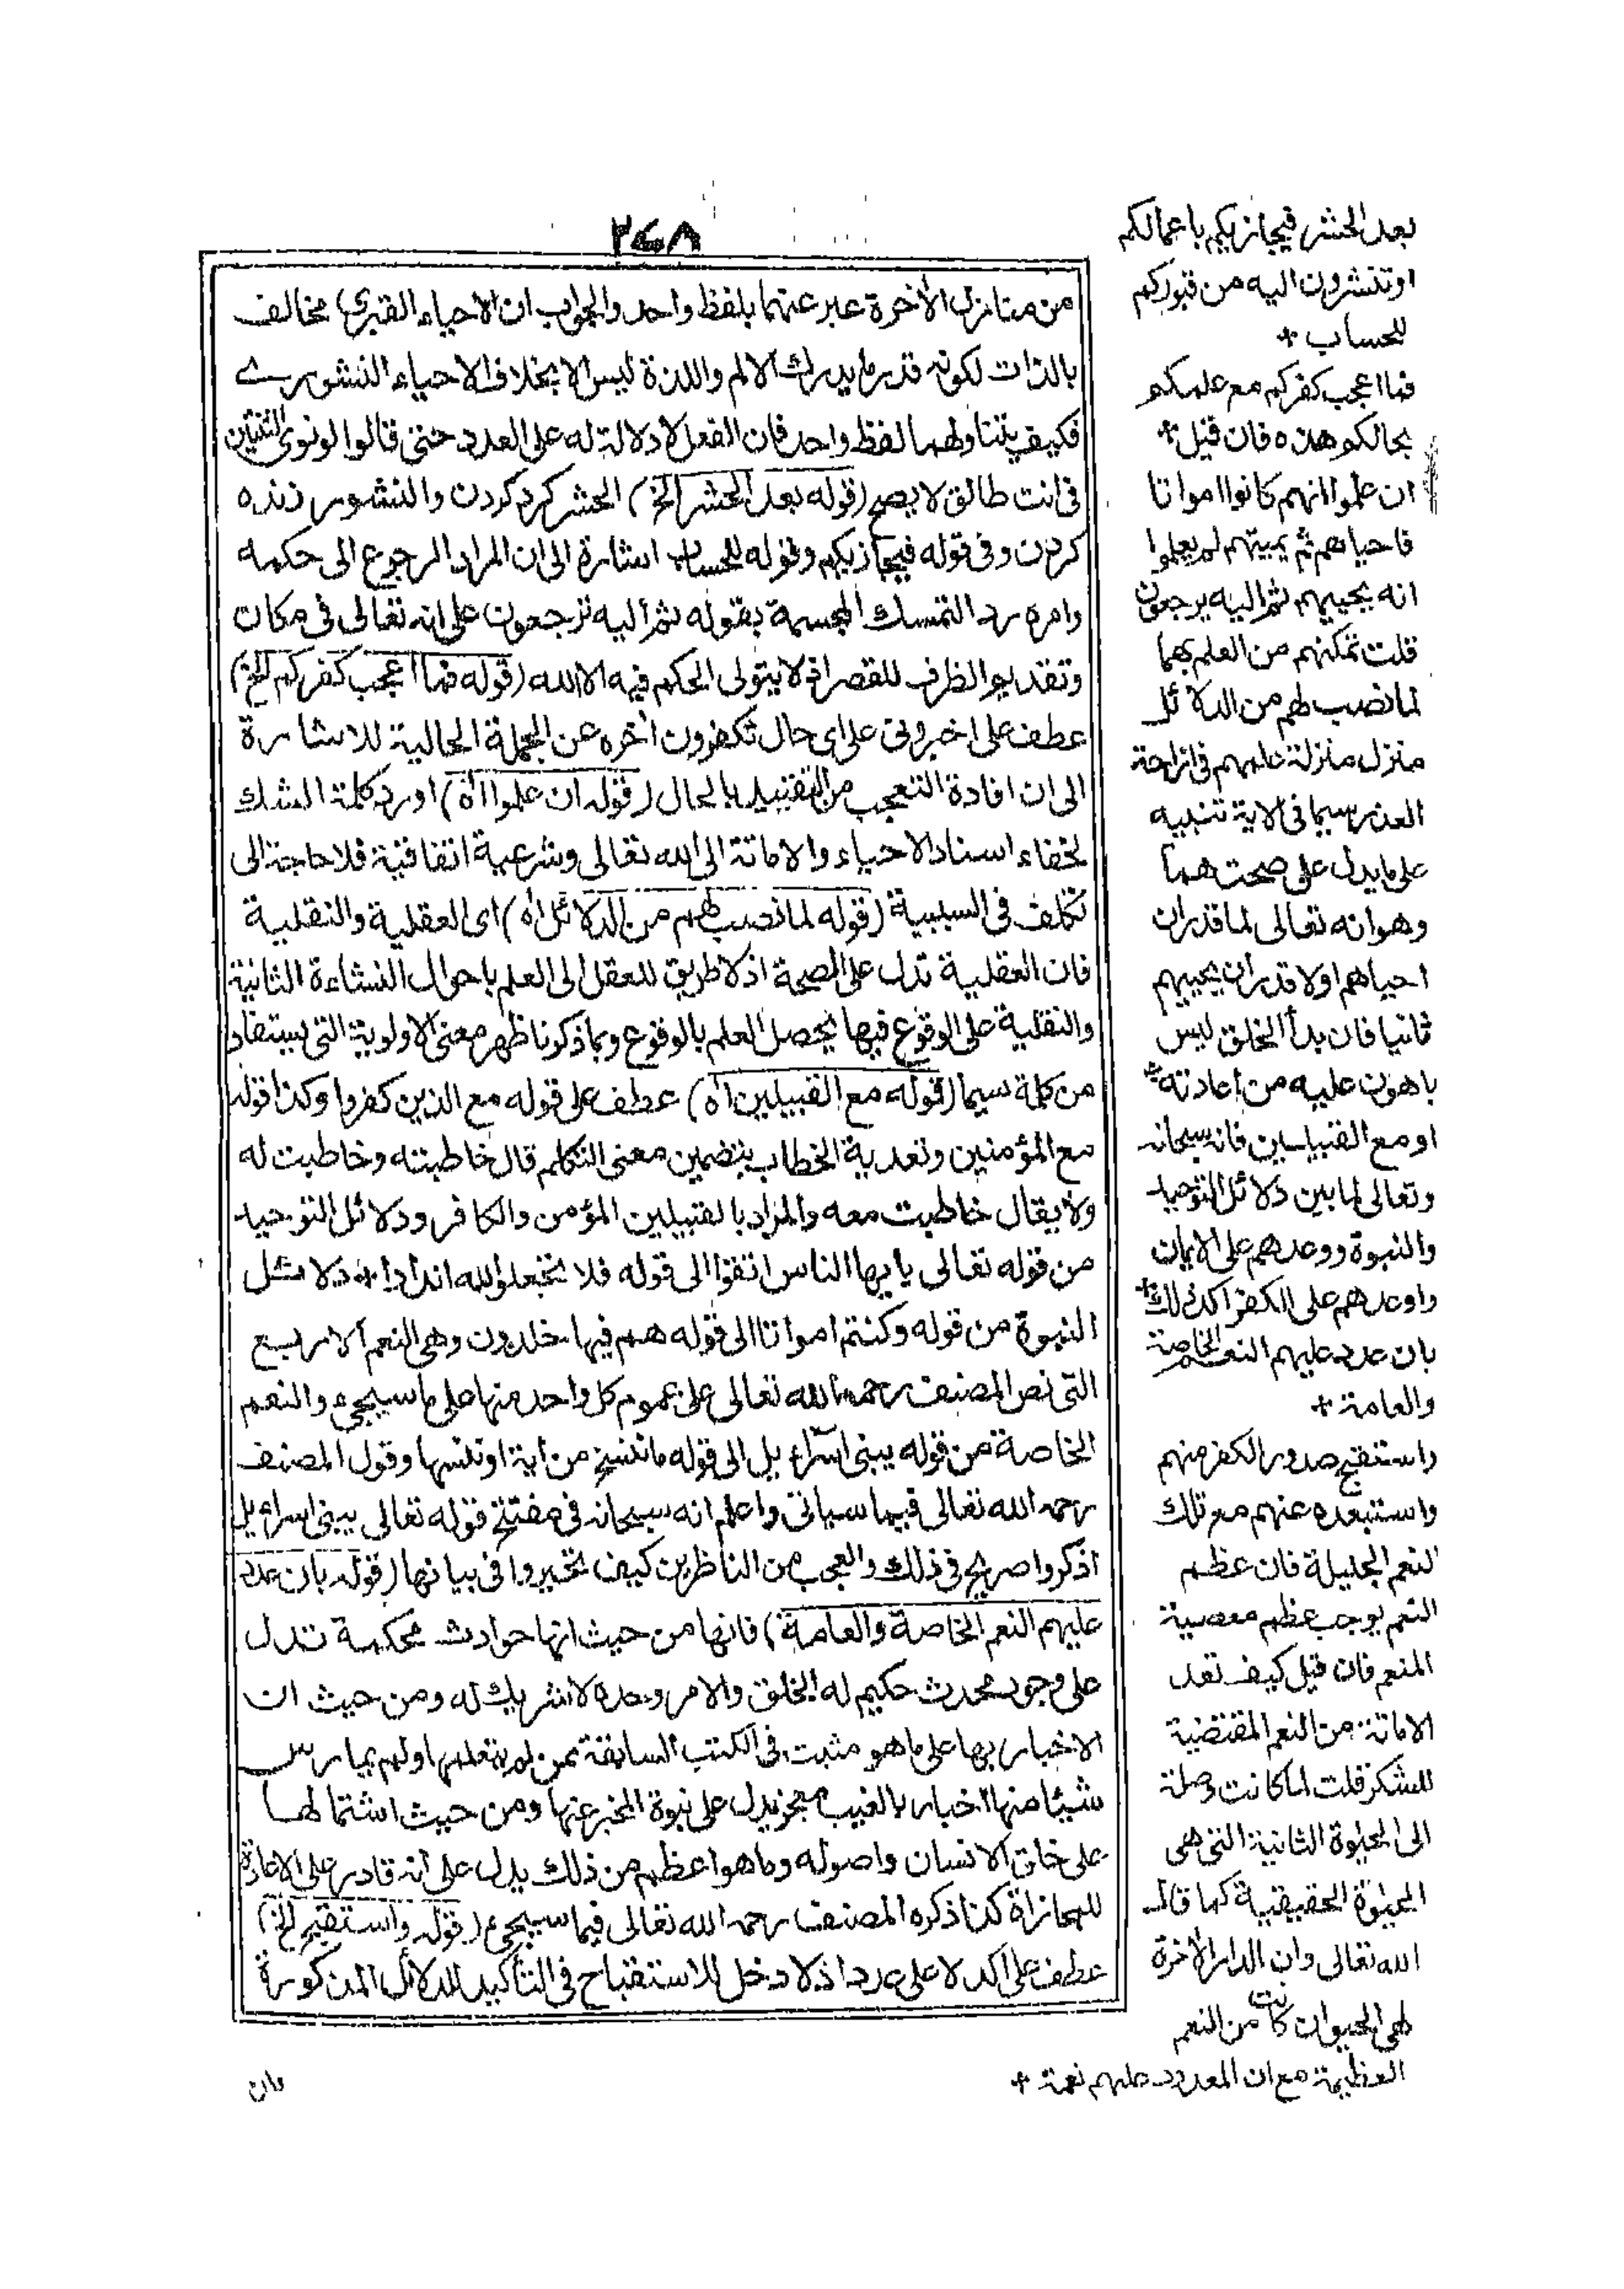 ٢٧٨
من منازل الأخرة عبر عنهما بلفظ واحد والجواب ان الاحياء القبرى مخالف
بالذات لكونه قدر ما يدرك الالم واللذة ليس الا بخلاف الاحياء النشورے
فكيف يتناولهما لفظ واحد فان الفعل لا دلالة له على العدد حتى قالوا لو نوى الثنتين
فى انت طالق لا يصح (قوله بعد الحشر الخ) الحشر كرد كردن والنشور زنده
كردن وفى قوله فيجازيكم وقوله للحساب اشارة الى ان المراد الرجوع الى حكمه
وامره رد التمسك المجسمة بقوله ثم اليه ترجعون على انه تعالى فى مكان
وتقديم الظرف للقصر اذ لا يتولى الحكم فيه الا الله (قوله فما اعجب كفركم الخ)
عطف على اخبرونى على اى حال تكفرون أخره عن الجملة الحالية للاشارة
الى ان افادة التعجب من التقييد بالحال (قوله ان علموا اه) اورد كلمة الشك
لخفاء اسناد الاحياء والاماتة الى الله تعالى وشرعية اتفاقية فلا حاجة الى
تكلف فى السببية (قوله لما نصب لهم من الدلائل اه) اى العقلية والنقلية
فان العقلية تدل على الصحة اذ لا طريق للعقل الى العلم باحوال النشاءة الثانية
والنقلية على الوقوع فبها يحصل العلم بالوقوع وبما ذكرنا ظهر معنى الاولوية التى يستفاد
من كلمة سيما (قوله مع القبيلين اه) عطف على قوله مع الذين كفروا وكذا قوله
مع المؤمنين وتعدية الخطاب بتضمين معنى التكلم قال خاطبته وخاطبت له
ولا يقال خاطبت معه والمراد بالقبيلين المؤمن والكافر ودلائل التوحيد
من قوله تعالى يايها الناس اتقوا الى قوله فلا تجعلوا لله اندادا + دلائل
النبوة من قوله وكنتم امواتا الى قوله هم فيها خلدون وهى النعم الاربع
التى نص المصنف رحمه الله تعالى على عموم كل واحد منها على ما سيجئ والنعم
الخاصة من قوله يبنى اسراءيل الى قوله ما ننسخ من أية او ننسها وقول المصنف
رحمه الله تعالى فيما سياتى واعلم انه سبحانه فى مفتتح قوله تعالى يبنى اسراءيل
اذكروا صريح فى ذلك والعجب من الناظرين كيف تحيروا فى بيانها (قوله بان عدد
عليهم النعم الخاصة والعامة) فانها من حيث انها حوادث محكمة تدل
على وجود محدث حكيم له الخلق والامر وحده لا شريك له ومن حيث ان
الاخبار بها على ما هو مثبت فى الكتب السابقة ممن لم يتعلمها ولم يمارس
شيئا منها اخبار بالغيب معجز يدل على نبوة المخبر عنها ومن حيث اشتمالها
على خلق الانسان واصوله وما هو اعظم من ذلك يدل على انه قادر على الاعادة
للمجازاة كذا ذكره المصنف رحمه الله تعالى فيما سيجئ (قوله واستقبح الخ)
عطف على اكد لا على عدد اذ لا دخل للاستقباح فى التأكيد للدلائل المذكورة
وان
بعد الحشر فيجازيكم باعمالكم
او تنشرون اليه من قبوركم
للحساب +
فما اعجب كفركم مع علمكم
بحالكم هذه فان قيل +
ان علموا انهم كانوا امواتا
فاحياهم ثم يميتهم لم يعلموا
انه يحييهم ثم اليه يرجعون
قلت تمكنهم من العلم بهما
لما نصب لهم من الدلائل
منزل منزلة علمهم فى ازاحة
العذر سيما فى الاية تنبيه
على ما يدل على صحتهما
وهو انه تعالى لما قدر ان
احياهم اولا قدر ان يحييهم
ثانيا فان بدأ الخلق ليس
باهون عليه من اعادته +
او مع القبيلين فانه سبحانه
وتعالى لما بين دلائل التوحيد
والنبوة ووعدهم على الايمان
واوعدهم على الكفر اكد ذلك +
بان عدد عليهم النعم الخاصة
والعامة +
واستقبح صدور الكفر منهم
واستبعده عنهم مع تلك
النعم الجليلة فان عظم
النعم يوجب عظم معصية
المنعم فان قيل كيف تعد
الاماتة من النعم المقتضية
للشكر قلت لما كانت وصلة
الى الحيوة الثانية التى هى
الحيوة الحقيقية كما قال
الله تعالى وان الدار الأخرة
لهى الحيوان كانت من النعم
العظيمة مع ان المعدود عليهم نعمة +